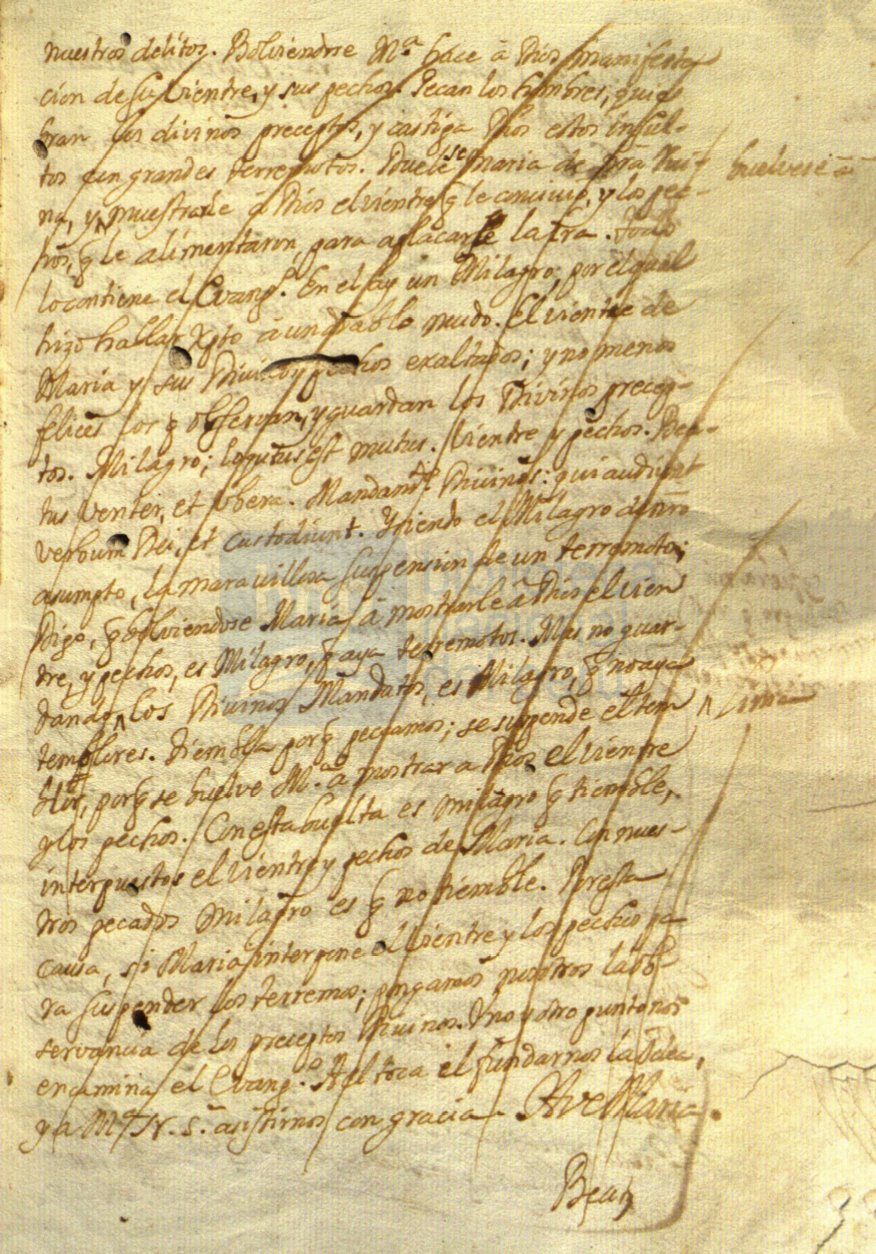 nuestros delitos. Bolviendose M.ª hace â Dios manifesta
cion de su vientre, y sus pechos. Pecan los hombres, quie
bran los divinos preceptos, y castiga Dios estos insul-
tos con grandes terremotos. Duele se Maria de ñra Rui-
na, y muestrale â Dios el vientre q̃ le concivio, y los pe-
buelvese â
chos, q̃ le alimentaron, para aplacarle la Ira. Todo
lo contiene el Evang.º En el ay un Milagro; por el qual
hizo hablar Xpto â un diablo mudo. El vientre de
Maria y sus Divinos pechos exaltados; y no menos
felices los q̃ observan, y guardan los Divinos precep-
tos. Milagro; loquutus est mutus. Vientre y pechos. Bea-
tus venter, et ubera. Mandam.tos Divinos: qui audiunt
verbum Dei, et custodiunt. Y siendo el Milagro de nr̃o
asumpto, la maravillosa suspension de un terremoto;
Digo, q̃ bolviendose Maria â mostrarle â Dios el vien
tre, y pechos, es Milagro, q̃ aya terremotos. Mas no guar-
dando los Divinos Mandatos, es Milagro, q̃ no aya
^ Lima
temblores. Tiembla porq̃ pecamos; se suspende el tem
blor, porq̃ se buelve M.ª a mostrar a Dios el vientre
y los pechos. Con esta buelta es milagro q̃ tiemble,
interpuestos el vientre y pechos de Maria. Con nues-
tros pecados Milagro es q̃ no tiemble. Por esta
causa, si Maria interpone el vientre y los pechos pa
ra suspender los terremos; pongamos nosotros la ob-
servancia de los preceptos Divinos. Uno y otro punto nos
encamina el Evang.º A el toca el fundarnos la Idea,
y a M.ª N. S.ª asistirnos con gracia. Ave Maria.
Bea